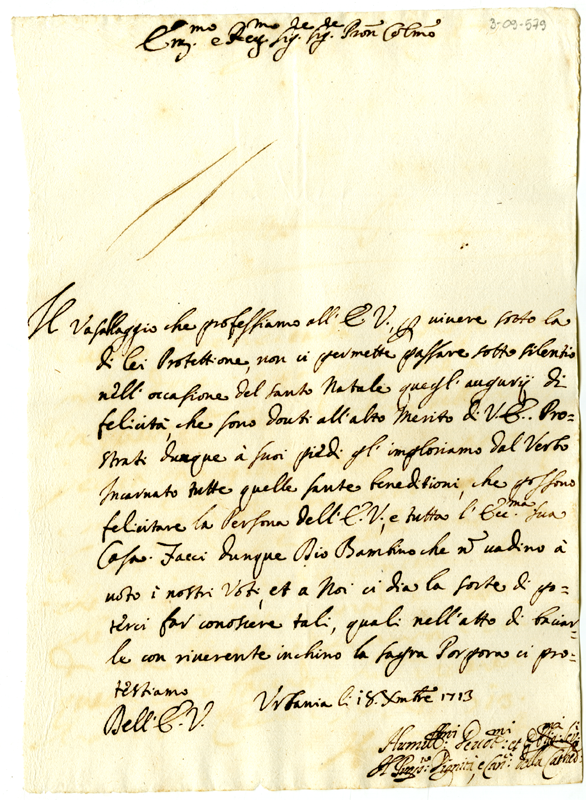 3-09-579
Em.mo e Rev.mo Sig.re Sig.re Pron Colmo
Il Vasallaggio che professiamo all' E.V., per vivere sotto la
di lei Protettione, non ci permette passare sotto silentio
nell' occasione del santo Natale quegl' augurij di
felicità, che sono douti all'alto Merito di V.E.. Pro=
strati dunque à suoi piedi gl' imploriamo dal Verbo
Incarnato tutte quelle sante beneditioni, che possono
felicitare la Persona dell' E.V., e tutta l' Ecc.ma sua
Casa. Facci dunque Dio Bambino che n̄ vadino à
voto i nostri Voti, et a Noi ci dia la sorte di po=
terci far conoscere tali, quali nell'atto di baciar=
le con riverente inchino la sagra Porpora ci pro=
testiamo
Urbania li 18. Xmbre 1713
Dell' E.V.
Humil.mi Devot.mi et
Dignità, e Can.ci della Catted.